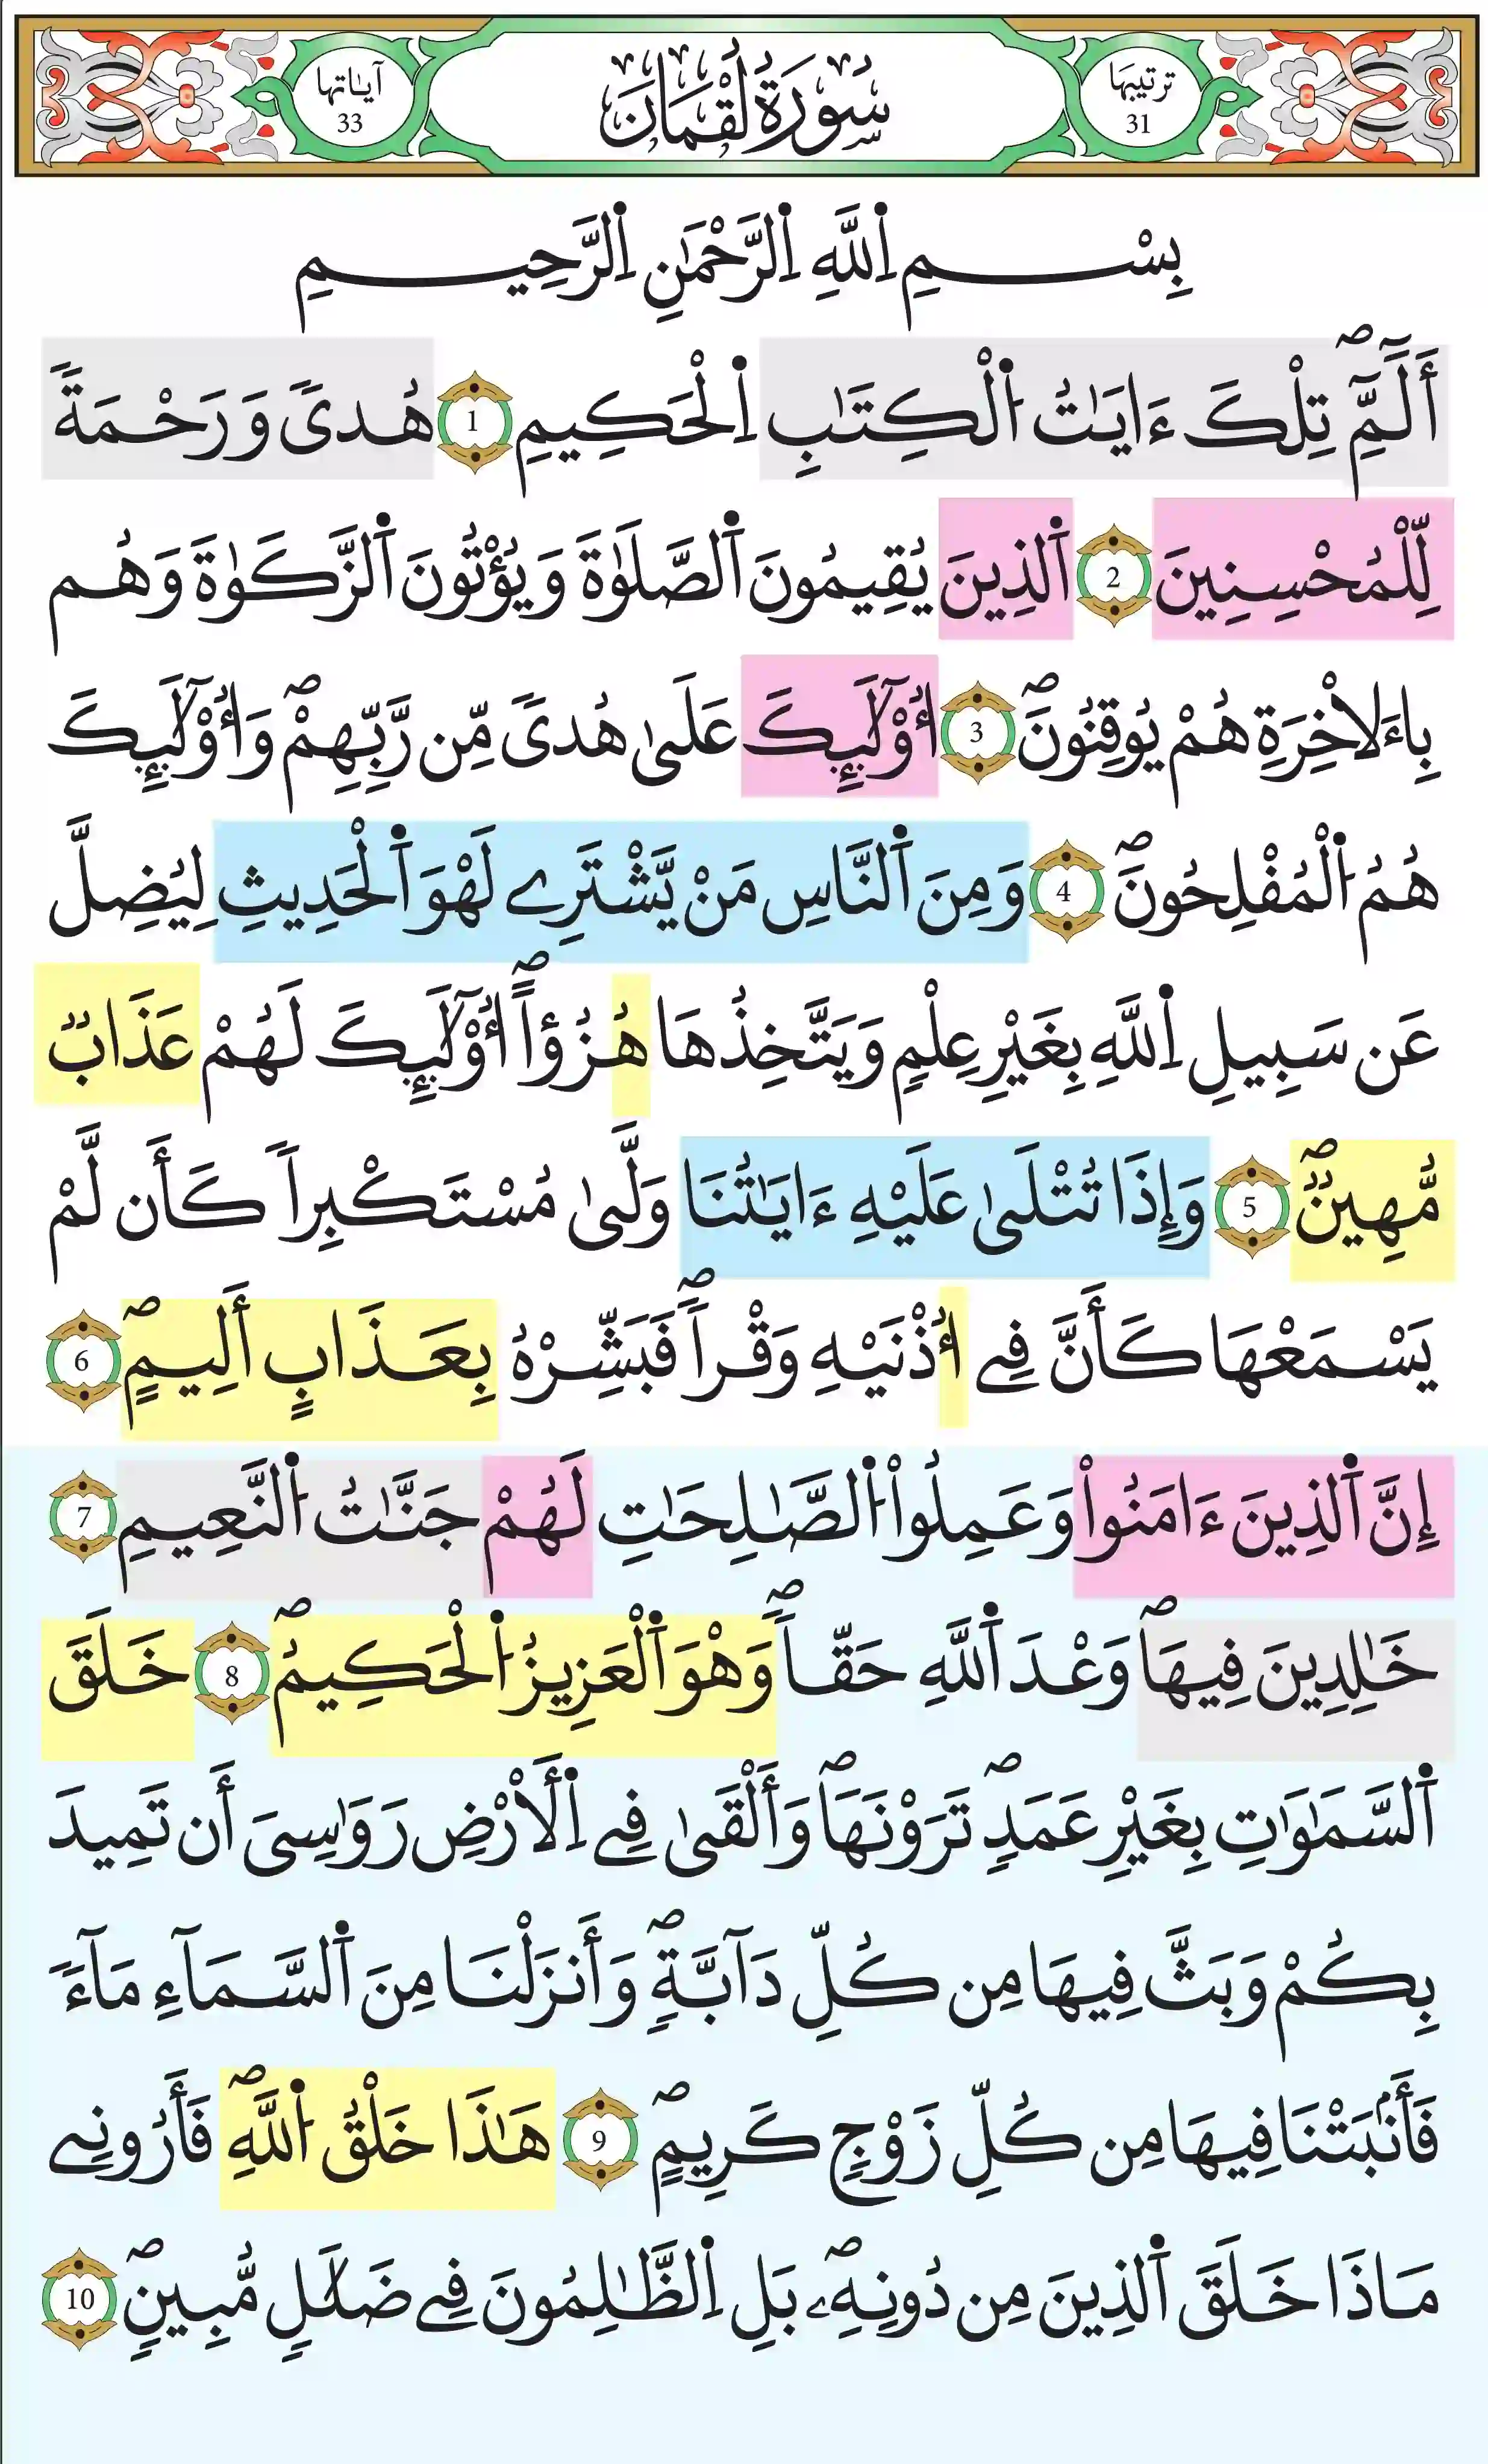 ترتيبها
31
سُورَةُ لُقْمَانَ
آياتها
33
بِسْمِ اِ۬للَّهِ اِ۬لرَّحْمَٰنِ اِ۬لرَّحِيمِ
أَلَٓمِّٓۖ تِلْكَ ءَايَٰتُ اُ۬لْكِتَٰبِ اِ۬لْحَكِيمِ 1 هُدىٗ وَرَحْمَةٗ
لِّلْمُحْسِنِينَ 2 اَ۬لذِينَ يُقِيمُونَ اَ۬لصَّلَوٰةَ وَيُؤْتُونَ اَ۬لزَّكَوٰةَ وَهُم
بِاءَلاخِرَةِ هُمْ يُوقِنُونَۖ 3 أُوْلَٰٓئِكَ عَلَىٰ هُدىٗ مِّن رَّبِّهِمْۖ وَأُوْلَٰٓئِكَ
هُمُ اُ۬لْمُفْلِحُونَۖ 4 وَمِنَ اَ۬لنَّاسِ مَنْ يَّشْتَرِے لَهْوَ اَ۬لْحَدِيثِ لِيُضِلَّ
عَن سَبِيلِ اِ۬للَّهِ بِغَيْرِ عِلْمٖ وَيَتَّخِذُهَا هُزُؤاًۖ أُوْلَٰٓئِكَ لَهُمْ عَذَابٞ
مُّهِينٞۖ 5 وَإِذَا تُتْلَىٰ عَلَيْهِ ءَايَٰتُنَا وَلَّىٰ مُسْتَكْبِراٗ كَأَن لَّمْ
يَسْمَعْهَا كَأَنَّ فِے أُذْنَيْهِ وَقْراٗۖ فَبَشِّرْهُ بِعَذَابٍ أَلِيمٍۖ 6
إِنَّ اَ۬لذِينَ ءَامَنُواْ وَعَمِلُواْ اُ۬لصَّٰلِحَٰتِ لَهُمْ جَنَّٰتُ اُ۬لنَّعِيمِ 7
خَٰلِدِينَ فِيهَاۖ وَعْدَ اَ۬للَّهِ حَقّاٗۖ وَهْوَ اَ۬لْعَزِيزُ اُ۬لْحَكِيمُۖ 8 خَلَقَ
اَ۬لسَّمَٰوَٰتِ بِغَيْرِ عَمَدٖۖ تَرَوْنَهَاۖ وَأَلْقَىٰ فِے اِ۬لْأَرْضِ رَوَٰسِيَ أَن تَمِيدَ
بِكُمْ وَبَثَّ فِيهَا مِن كُلِّ دَآبَّةٖۖ وَأَنزَلْنَا مِنَ اَ۬لسَّمَآءِ مَآءٗ
فَأَنۢبَتْنَا فِيهَا مِن كُلِّ زَوْجٖ كَرِيمٍۖ 9 هَٰذَا خَلْقُ اُ۬للَّهِۖ فَأَرُونِے
مَاذَا خَلَقَ اَ۬لذِينَ مِن دُونِهِۦۖ بَلِ اِ۬لظَّٰلِمُونَ فِے ضَلَٰلٖ مُّبِينٖۖ 10